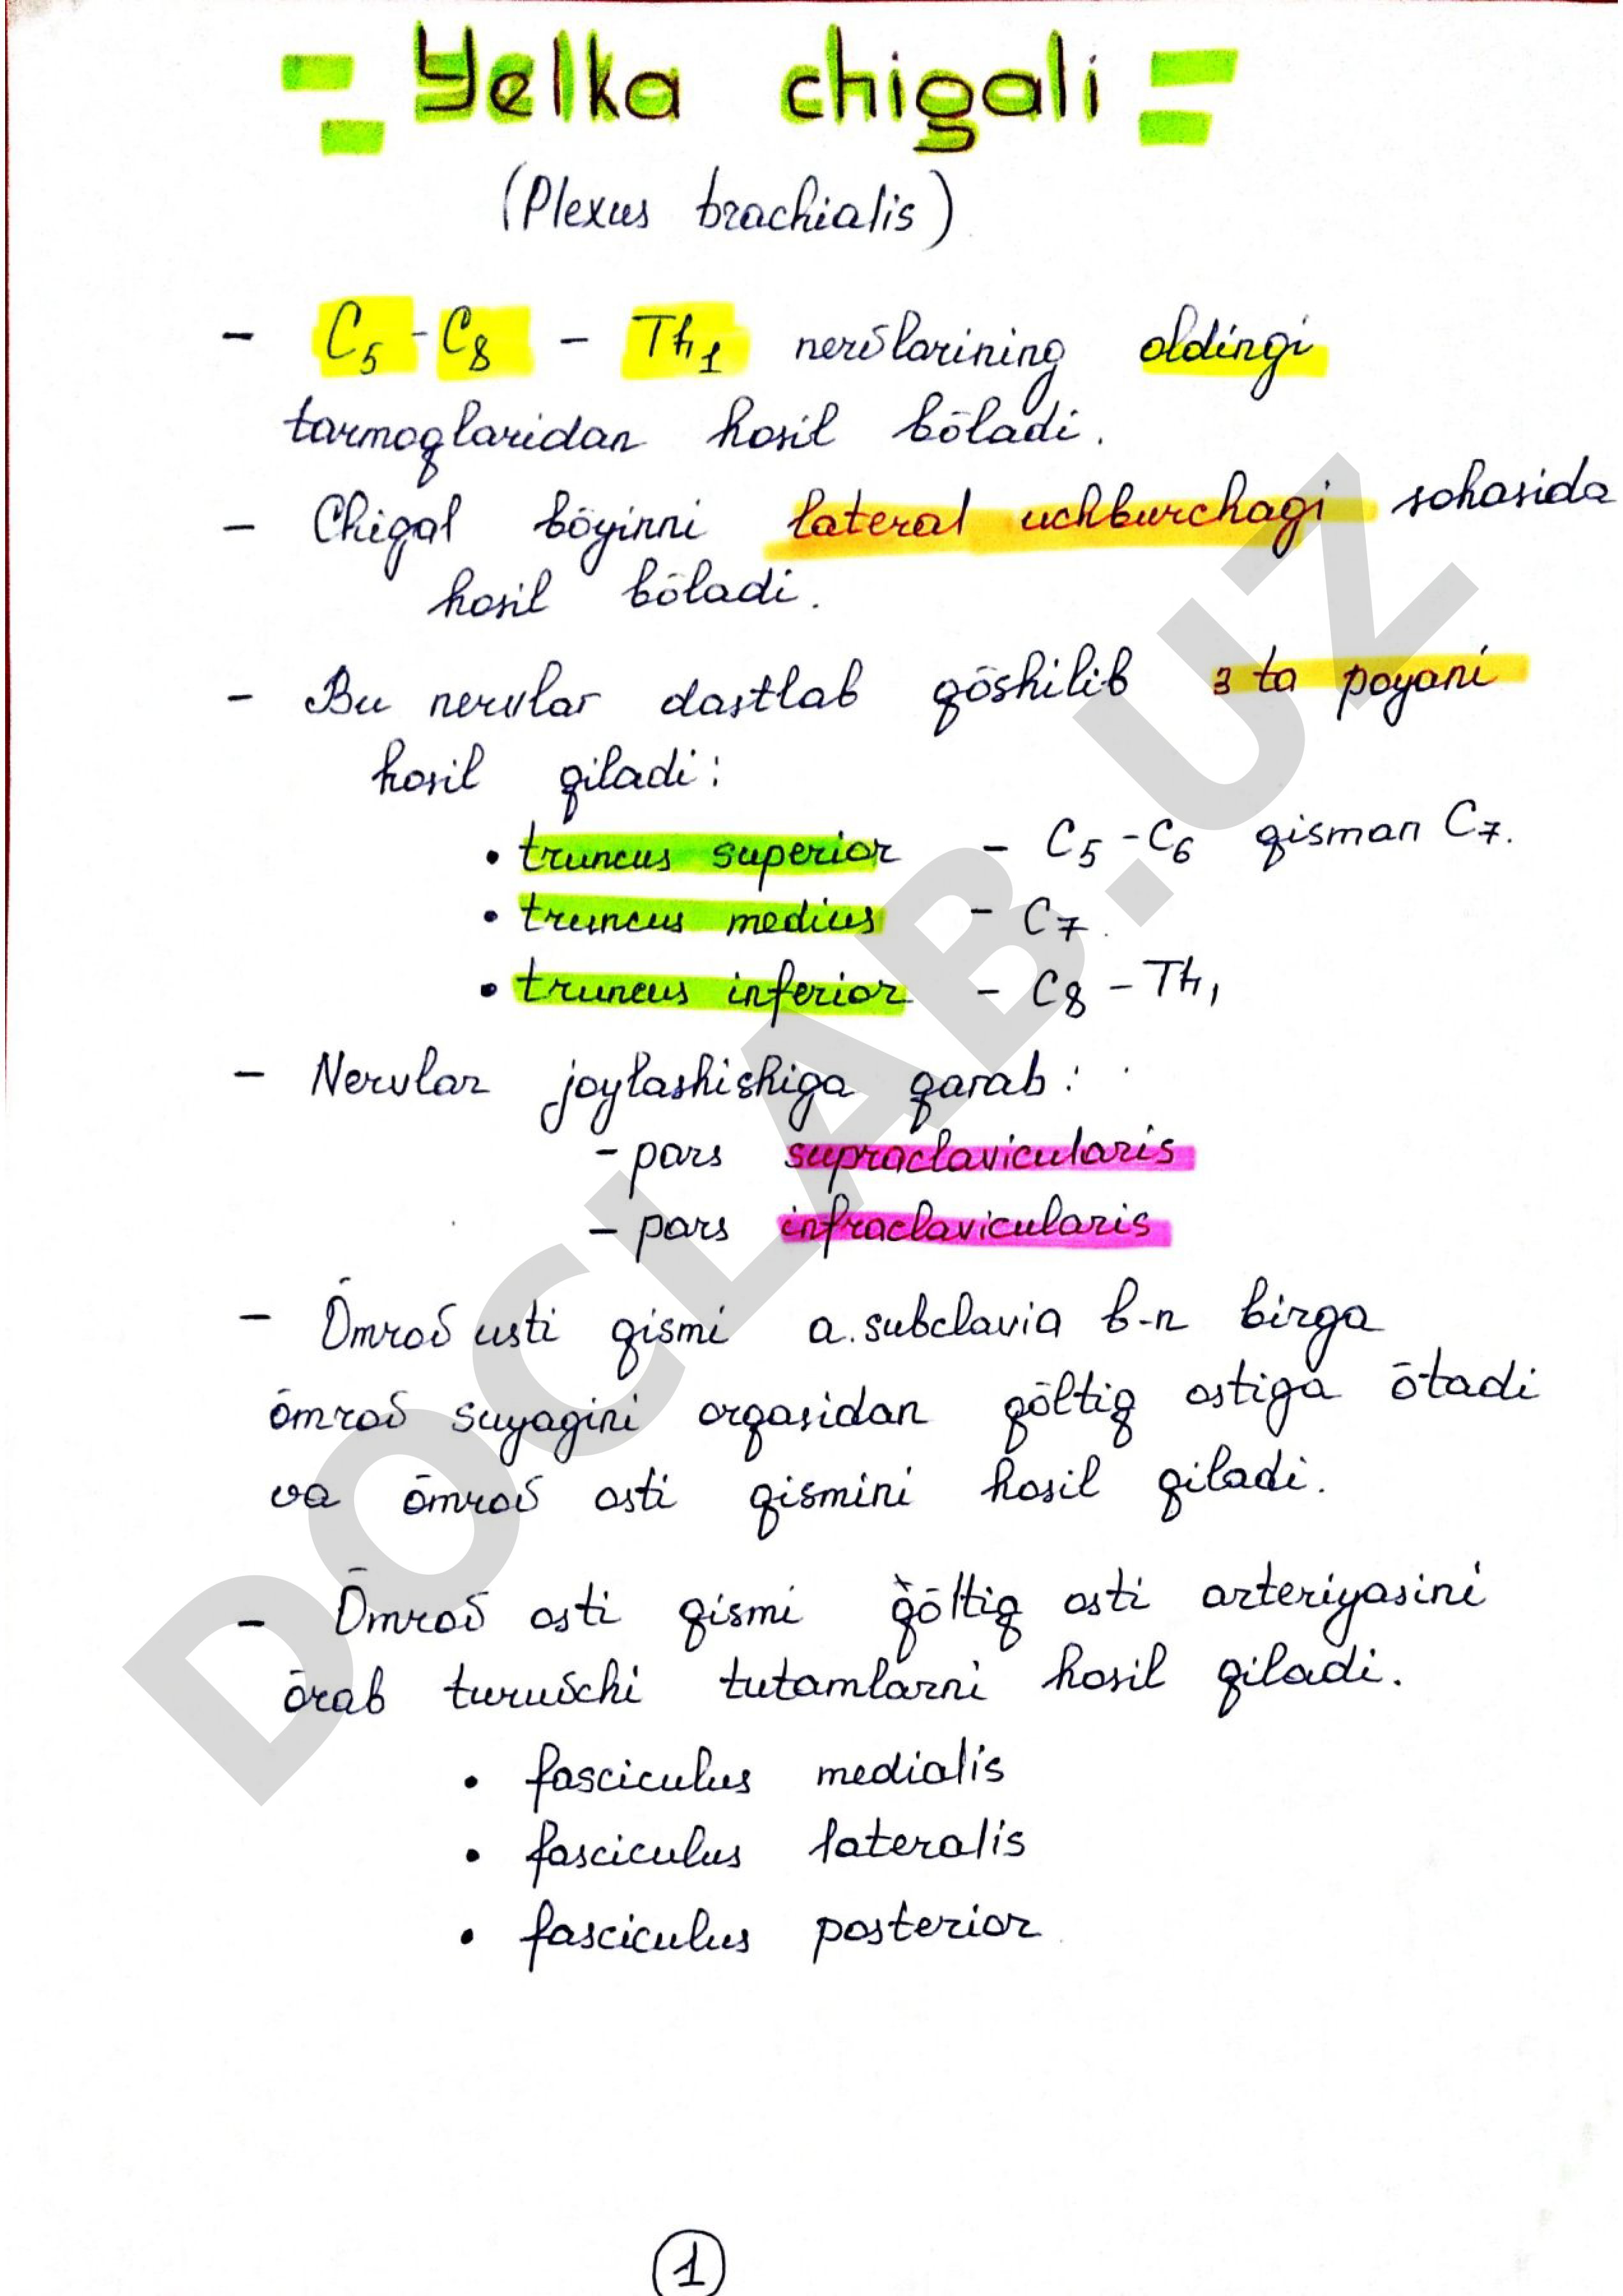 Yelka chigali
(Plexus brachialis)
- C5 - C8 - Th1 nervlarining oldingi
tarmoqlaridan hosil bōladi.
- Chigal bōyinni lateral uchburchagi sohasida
hosil bōladi.
- Bu nervlar dastlab qōshilib 3 ta poyani
hosil qiladi:
• truncus superior - C5 - C6 qisman C7.
• truncus medius - C7.
• truncus inferior - C8 - Th1
- Nervlar joylashishiga qarab:
- pars supraclavicularis
- pars infraclavicularis
- Ōmrov usti qismi a. subclavia b-n birga
ōmrov suyagini orqasidan qōltiq ostiga ōtadi
va ōmrov osti qismini hosil qiladi.
- Ōmrov osti qismi qōltiq osti arteriyasini
ōrab turuvchi tutamlarni hosil qiladi.
• fasciculus medialis
• fasciculus lateralis
• fasciculus posterior
1
DOCLAB.UZ